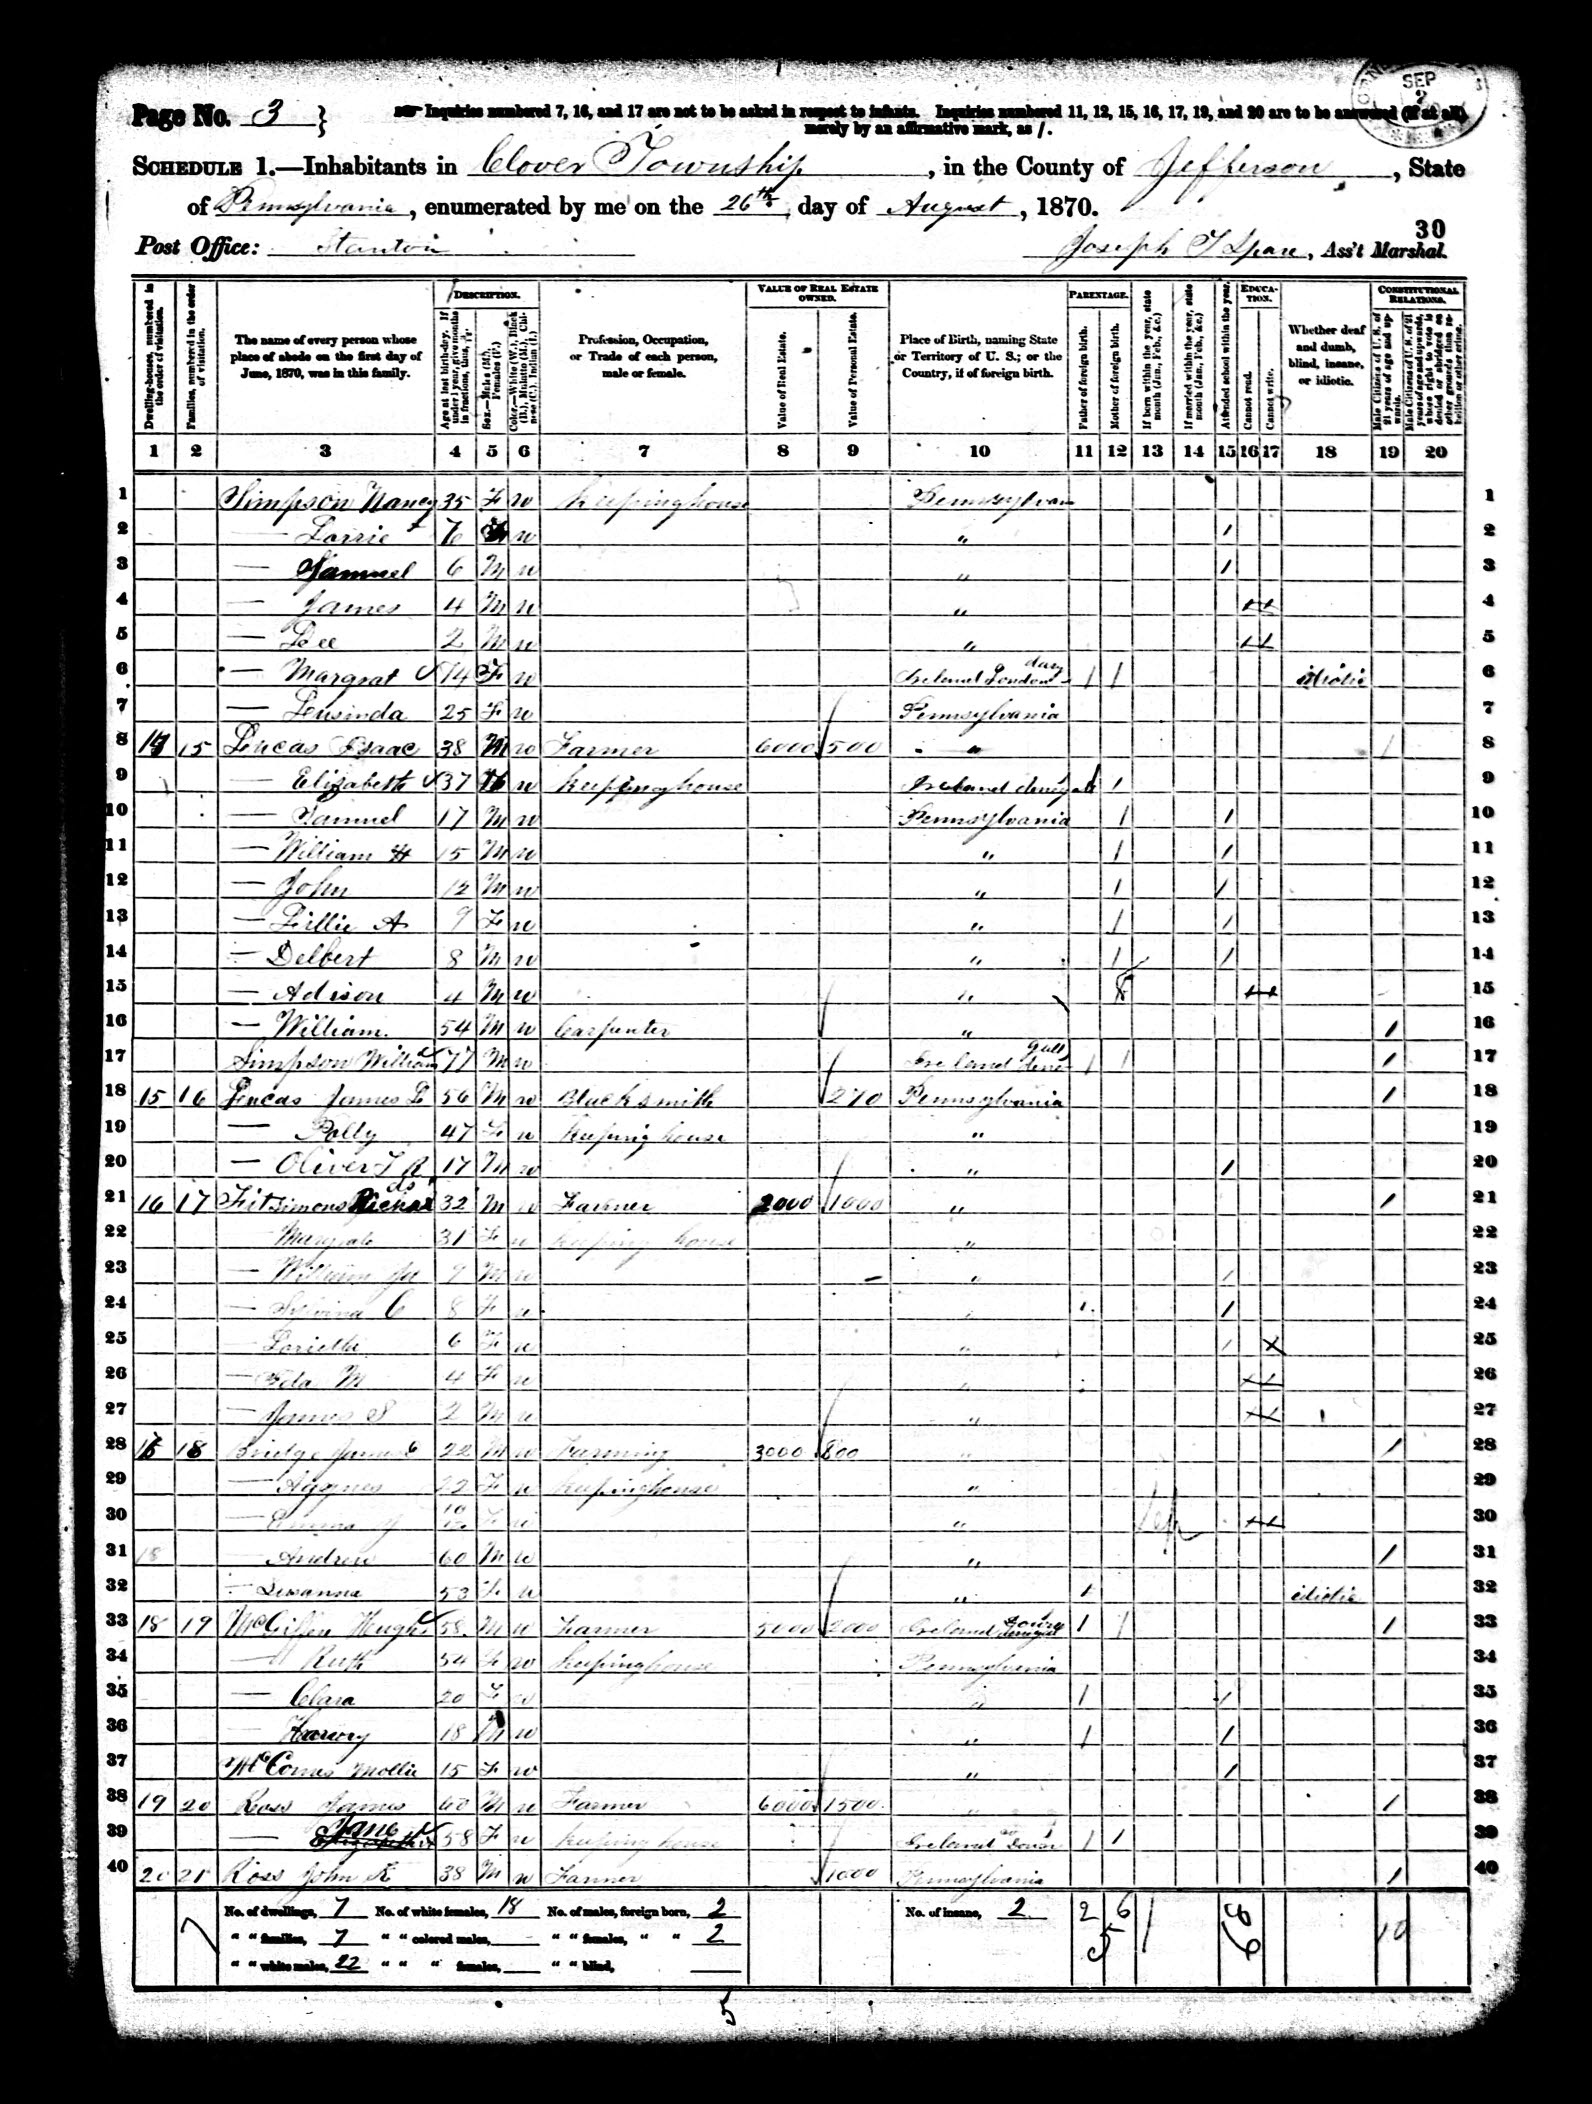 SEP
2
Page No. 3 } Inquiries numbered 7, 16, and 17 are not to be asked in respect to infants. Inquiries numbered 11, 12, 15, 16, 17, 19, and 20 are to be answered (if at all)
merely by an affirmative mark, as /.
SCHEDULE 1.—Inhabitants in Clover Township, in the County of Jefferson, State
of Pennsylvania, enumerated by me on the 26th day of August, 1870.
30
Post Office: Stanton Joseph T Ass't Marshal.
Dwelling-houses, numbered in the order of visitation.
Families, numbered in the order of visitation.
The name of every person whose place of abode on the first day of June, 1870, was in this family.
DESCRIPTION.
Age at last birth-day. If under 1 year, give months in fractions, thus,
Sex.—Males (M.), Females (F.)
Color.—White (W.), Black (B.), Mulatto (M.), Chinese (C.), Indian (I.)
Profession, Occupation, or Trade of each person, male or female.
VALUE OF REAL ESTATE OWNED.
Value of Real Estate.
Value of Personal Estate.
Place of Birth, naming State or Territory of U. S.; or the Country, if of foreign birth.
PARENTAGE.
Father of foreign birth.
Mother of foreign birth.
If born within the year, state month (Jan., Feb., &c.)
If married within the year, state month (Jan., Feb., &c.)
Attended school within the year.
EDUCATION.
Cannot read.
Cannot write.
Whether deaf and dumb, blind, insane, or idiotic.
CONSTITUTIONAL RELATIONS.
Male Citizens of U. S. of 21 years of age and upwards.
Male Citizens of U. S. of 21 years of age and upwards, whose right to vote is denied or abridged on other grounds than rebellion or other crime.
1 2 3 4 5 6 7 8 9 10 11 12 13 14 15 16 17 18 19 20
1 Simpson Nancy 35 F w Keeping house Pennsylvan 1
2 — F w " / 2
3 — Samuel 6 M w " / 3
4 — James 4 M w " 4
5 — Lee 2 M w " 5
6 — Margrat 74 F w Ireland London dary / / idiotic 6
7 — 25 F w Pennsylvania 7
8 14 15 Lucas Isaac 38 M w Farmer 6000 500 " / 8
9 — Elizabeth 37 w Keeping house Ireland / / 9
10 — Samuel 17 M w Pennsylvania / / 10
11 — William H 15 M w " / / 11
12 — John 12 M w " / / 12
13 — Lillie A 9 F w " / / 13
14 — Delbert 8 M w " / / 14
15 — Adison 4 M w " 15
16 — William 54 M w Carpenter " / 16
17 Simpson William 77 M w Ireland / / / 17
18 15 16 Lucas James L 56 M w Blacksmith 270 Pennsylvania / 18
19 — Polly 47 F w Keeping house " 19
20 — Oliver 17 M w " / 20
21 16 17 Fitsimons Richards 32 M w Farmer 2000 1000 " / 21
22 — 31 F w Keeping house " 22
23 — William 9 M w " / 23
24 — C 8 F w " / 24
25 — Lorietta 6 F w " / x 25
26 — Ida M 4 F w " 26
27 — James S 2 M w " 27
28 18 Bridge James 22 M w Farming 3000 800 " / 28
29 — Aggnes 22 F w Keeping house " 29
30 — Emma J 10/12 F w " Sep 30
31 18 Andrew 60 M w " / 31
32 — Susanna 53 F w " idiotic 32
33 18 19 McGiffen Hugh 58 M w Farmer 5000 2000 Ireland / / / 33
34 — Ruth 54 F w Keeping house Pennsylvania 34
35 — Clara 20 F w " / / 35
36 — Harvey 18 M w " / / 36
37 Mollie 15 F w " / 37
38 19 20 Ross James 60 M w Farmer 6000 1500 " / 38
39 — Jane 58 F w Keeping house Ireland Down / / 39
40 20 21 Ross John 38 M w Farmer 1000 Pennsylvania / 40
No. of dwellings, 7 No. of white females, 18 No. of males, foreign born, 2 No. of insane, 2 2 6 10
" " families, 7 " " colored males, " " females, " " 2
" " white males, 22 " " " females, " " blind,
5